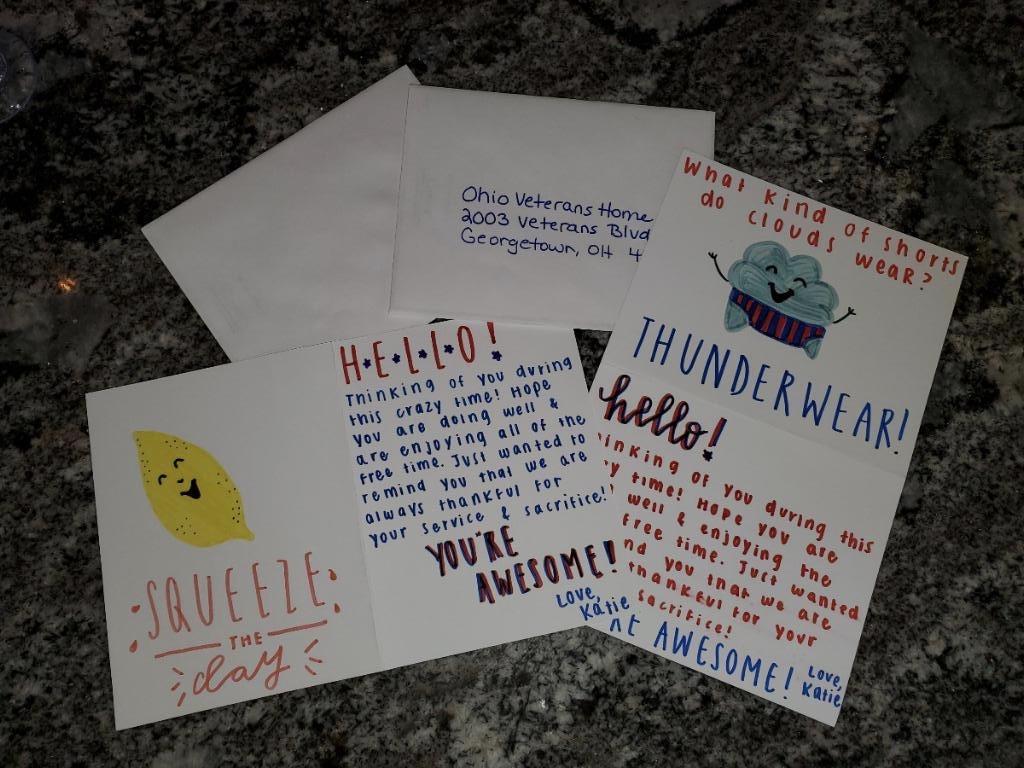 Ohio Veterans Home
2003 Veterans Blvd
Georgetown, OH 4
What kind of shorts
do clouds wear?
THUNDERWEAR!
H•E•L•L•O!
Thinking of you during
this crazy time! Hope
you are doing well &
are enjoying all of the
free time. Just wanted to
remind you that we are
always thankful for
your service & sacrifice!
YOU'RE
AWESOME!
Love,
Katie
SQUEEZE
THE
day
hello!
inking of you during this
y time! Hope you are
well & enjoying the
free time. Just wanted
nd you that we are
thankful for your
sacrifice!
AWESOME!
Love,
Katie